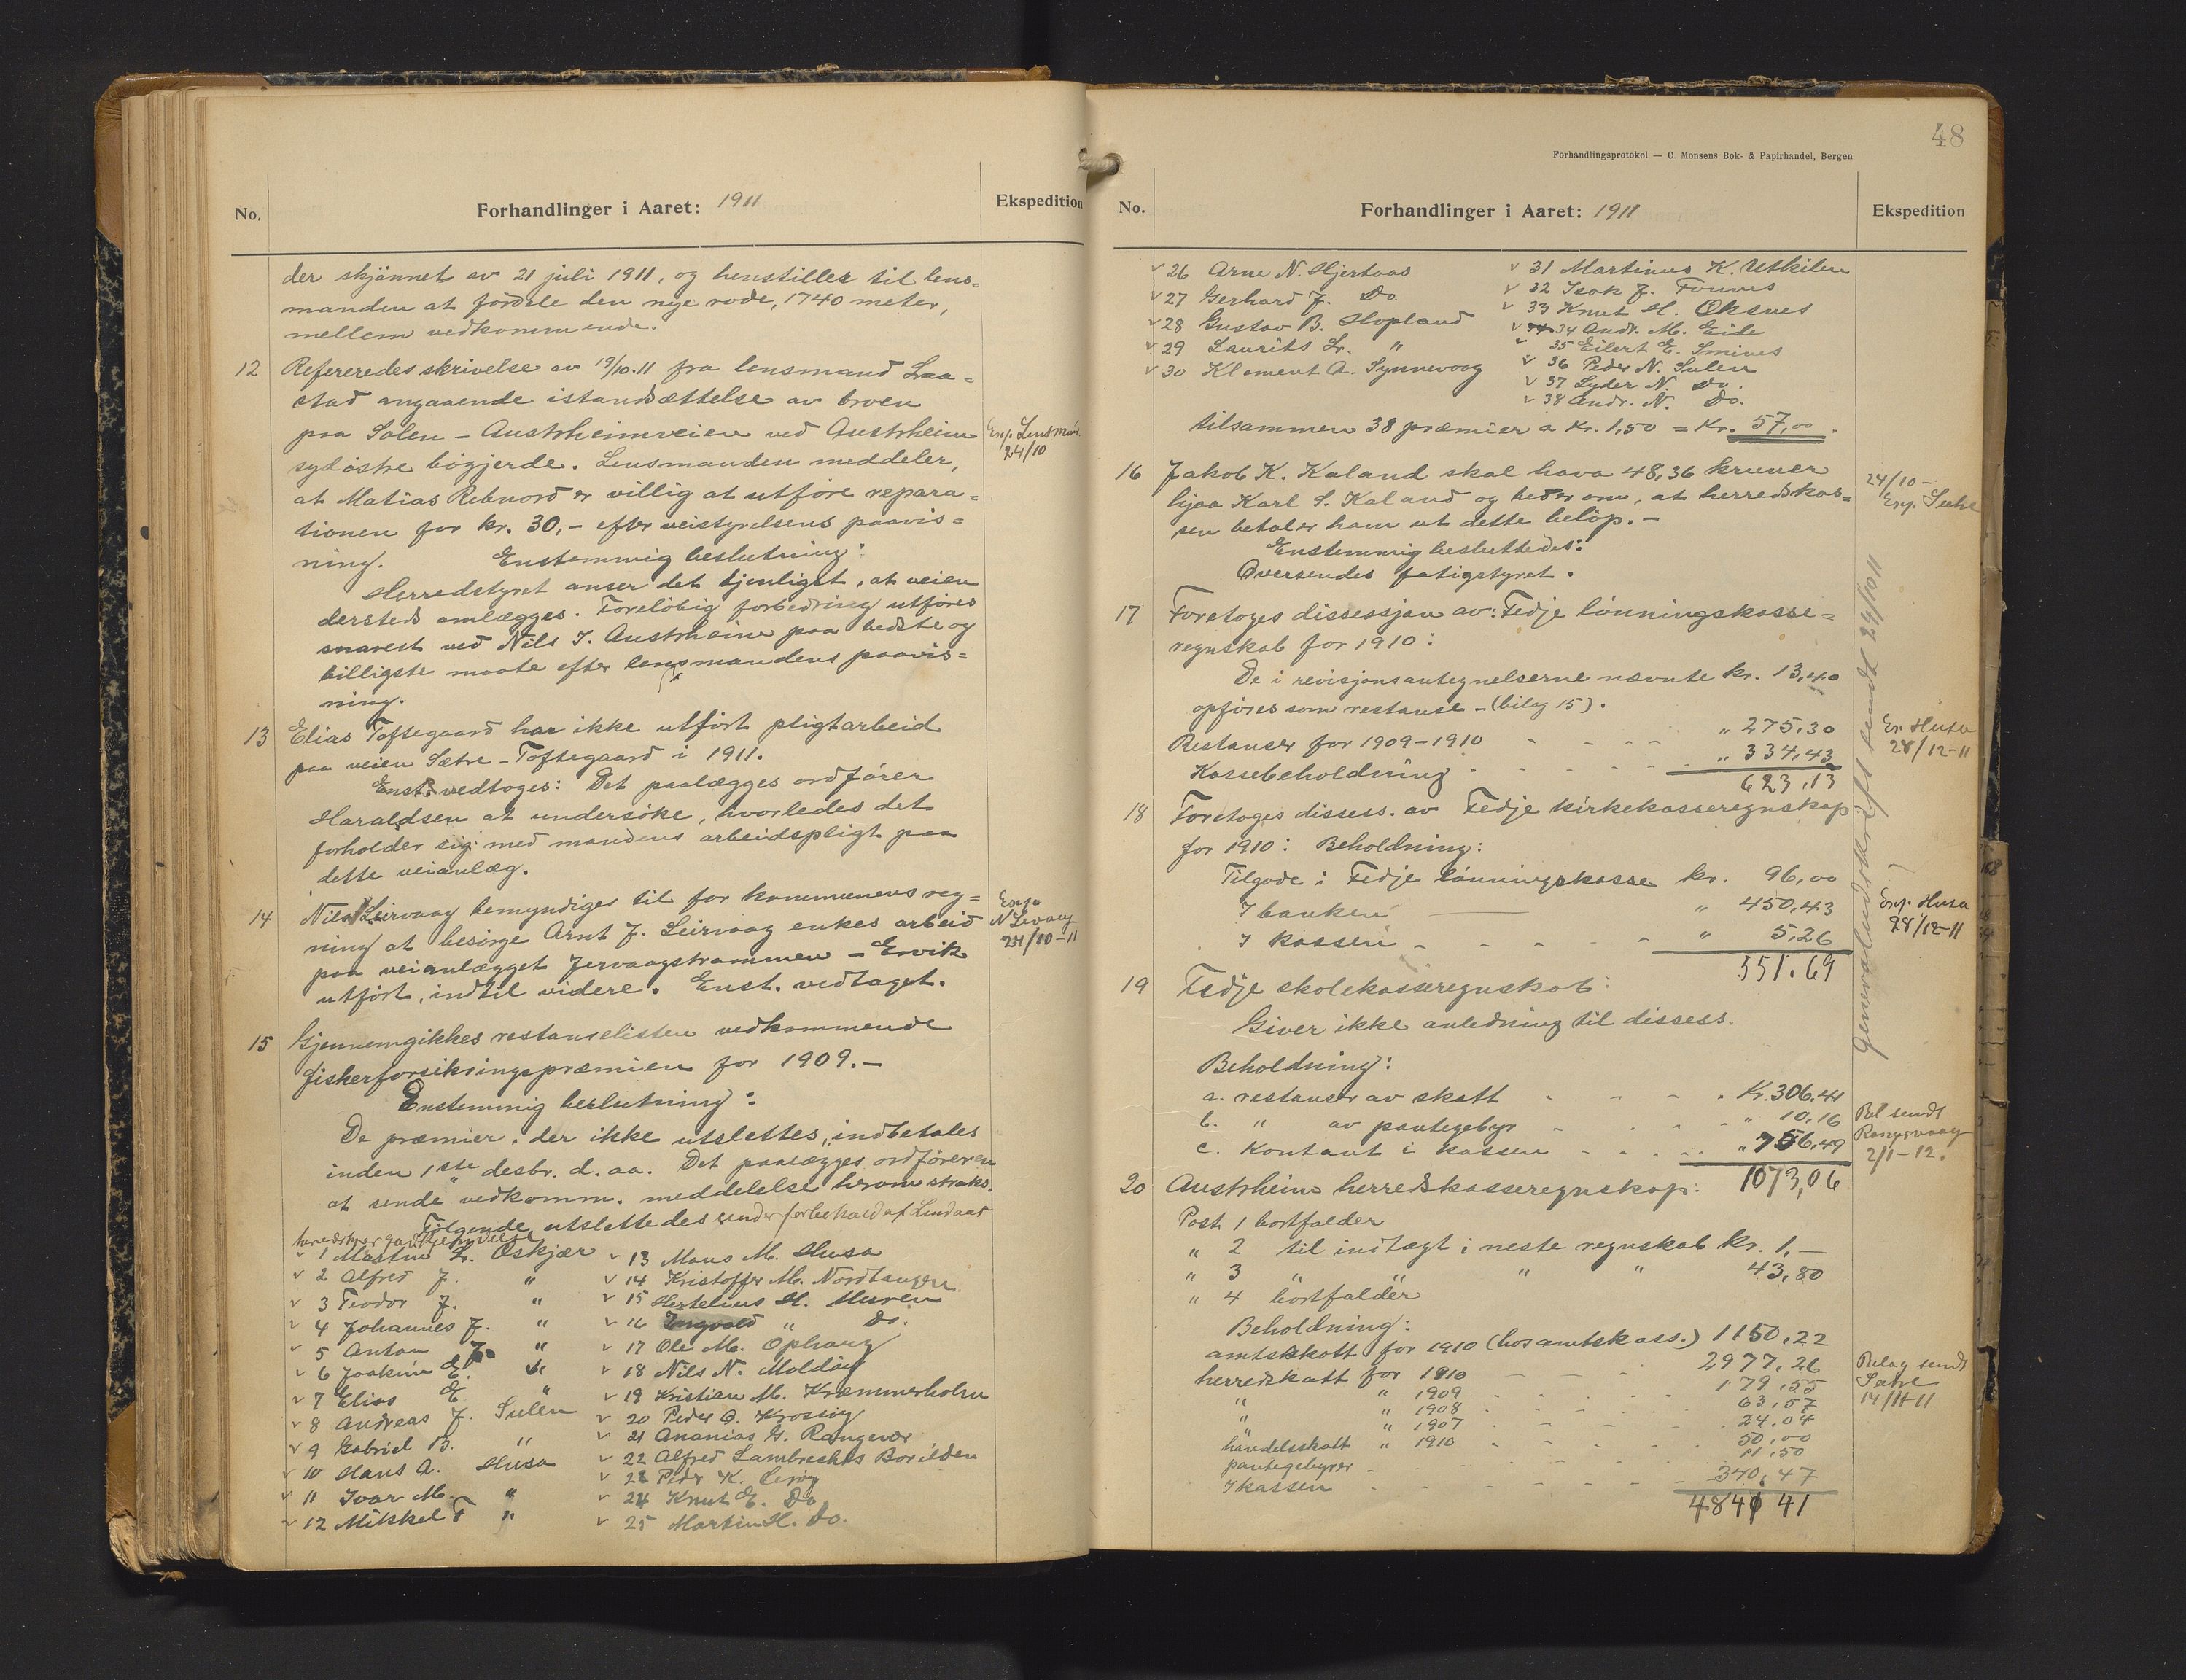 No.
Forhandlinger i Aaret: 1911
Ekspedition
der skjønnet av 21 juli 1911, og henstilles til lens=
manden at fordele den nye rode, 1740 meter,
mellem vedkommende.
12 Refereredes skrivelse av 19/10.11 fra lensmand Laa=
stad angaaende istandsættelse av broen
paa Solen - Austrheimveien ved Austrheim
Exp. Lensmd.
24/10
syd østre bøgjerde. Lensmanden meddeler,
at Matias Rebnord er villig at utføre repara=
tionen for kr. 30,- efter veistyrelsens paavis=
ning. Enstemmig beslutning:
Herredstyret anser det tjenligst, at veien
dersteds omlægges. Foreløbig forbedring utføres
snarest ved Nils J. Austrheim paa bedste og
billigste maate efter lensmandens paavis=
ning.
13 Elias Toftegaard har ikke utført pligtarbeid
paa veien Sætre - Toftegaard i 1911.
Enst. vedtoges: Det paalægges ordfører
Haraldsen at undersøke, hvorledes det
forholder sig med mandens arbeidspligt paa
dette veianlæg.
14 Nils Leirvaag bemyndiges til for kommunens reg=
ning at besørge Arnt J. Leirvaag enkes arbeid
paa veianlægget Jervaagstrammen - Ervik
utført, indtil videre. Enst. vedtaget.
Exp.
N Levaag
24/10-11
15 Gjennemgikkes restanselisten vedkommende
fiskerforsikringspræmien for 1909.-
Enstemmig beslutning:
De præmier, der ikke utslettes, indbetales
inden 1ste desbr. d. aa. Det paalægges ordføreren
at sende vedkomm. meddelelse herom straks.
Følgende utslettedes under forbehold af Lindaas
herredstyres godkjendelse
v 1 Martin Lr. Oskjær
v 2 Alfred J. "
v 3 Teodor J. "
v 4 Johannes J. "
v 5 Anton J. "
v 6 Joakim E. "
v 7 Elias E. "
v 8 Andreas J. Sulen
v 9 Gabriel B. "
v 10 Hans A. Husa
v 11 Ivar M. "
v 12 Mikkel T "
v 13 Mons M. Husa
v 14 Kristoffer M. Nordtangen
v 15 Hertelius H. Huren
v 16 Ingvald " Do.
v 17 Ole M. Ophaug
v 18 Nils N. Molding
v 19 Kristian M. Kræmmerholm
v 20 Peder O. Krossøy
v 21 Ananias G. Rangevær
v 22 Alfred Lambrechts Borilden
v 23 Peder K. Lerøy
v 24 Knut E. Do
v 25 Martin H. Do.
48
Forhandlingsprotokol — C. Monsens Bok- & Papirhandel, Bergen
No.
Forhandlinger i Aaret: 1911
Ekspedition
v 26 Arne N. Hjertaas
v 27 Gerhard J. Do.
v 28 Gustav B. Hopland
v 29 Laurits Lr. "
v 30 Klement A. Synnevaag
v 31 Martinus K. Utkilen
v 32 Isak J. Fonnes
v 33 Knut H. Oksnes
v 34 Andr. M. Eide
v 35 Eilert E. Smines
v 36 Peder N. Sulen
v 37 Lyder N. Do.
v 38 Andr. N. Do.
tilsammen 38 præmier a kr. 1,50 = kr. 57,00.
16 Jakob K. Kaland skal hava 48,36 kruner
hjaa Karl S. Kaland og beder om, at herredskas=
sen betaler ham ut dette beløp.-
24/10-
Exp. Sæhe
Enstemmig besluttedes:
Oversendes fatigstyret.
17 Foretoges dissessjon av: Fedje lønningskasse=
regnskab for 1910:
De i revisjonsantegnelserne nævnte kr. 13,40
opføres som restanse - (bilag 15).
Restanser for 1909-1910 - - - - " 275,30
Kassebeholdning - - - - - " 334,43
623,13
Ex. Husa
28/12-11
18 Foretoges dissess. av Fedje kirkekasseregnskap
for 1910: Beholdning:
Tilgode i Fedje lønningskasse kr. 96,00
I banken " 450,43
I kassen - - - - - " 5,26
551.69
Exp. Husa
28/12-11
19 Fedje skolekasseregnskab:
Giver ikke anledning til dissess.
Beholdning:
a. restanser av skatt - - - - Kr. 306.41
b. " av pantegebyr - - - - " 10,16
c. Kontant i kassen - - - - " 756,49
1073,06
Bel sendt
2/1-12.
20 Austrheim herredskasseregnskap:
Post 1 bortfalder
" 2 til indtægt i neste regnskab kr. 1,-
" 3 " " " " 43,80
" 4 bortfalder
Beholdning:
amtskatt for 1910 (hos amtskass.) 1150,22
herredskatt for 1910 - - - 2977,26
" " 1909 - - - - 179,55
" " 1908 - - - - 63,57
" " 1907 - - - - 24,04
handelsskatt " 1910 - - - - 50,00
pantegebyrer - - - - - 11,50
I kassen - - - - - 340,47
4841 41
Belag sendt
Sætre
14/11-11
Generalundskrift sendt 24/10 11